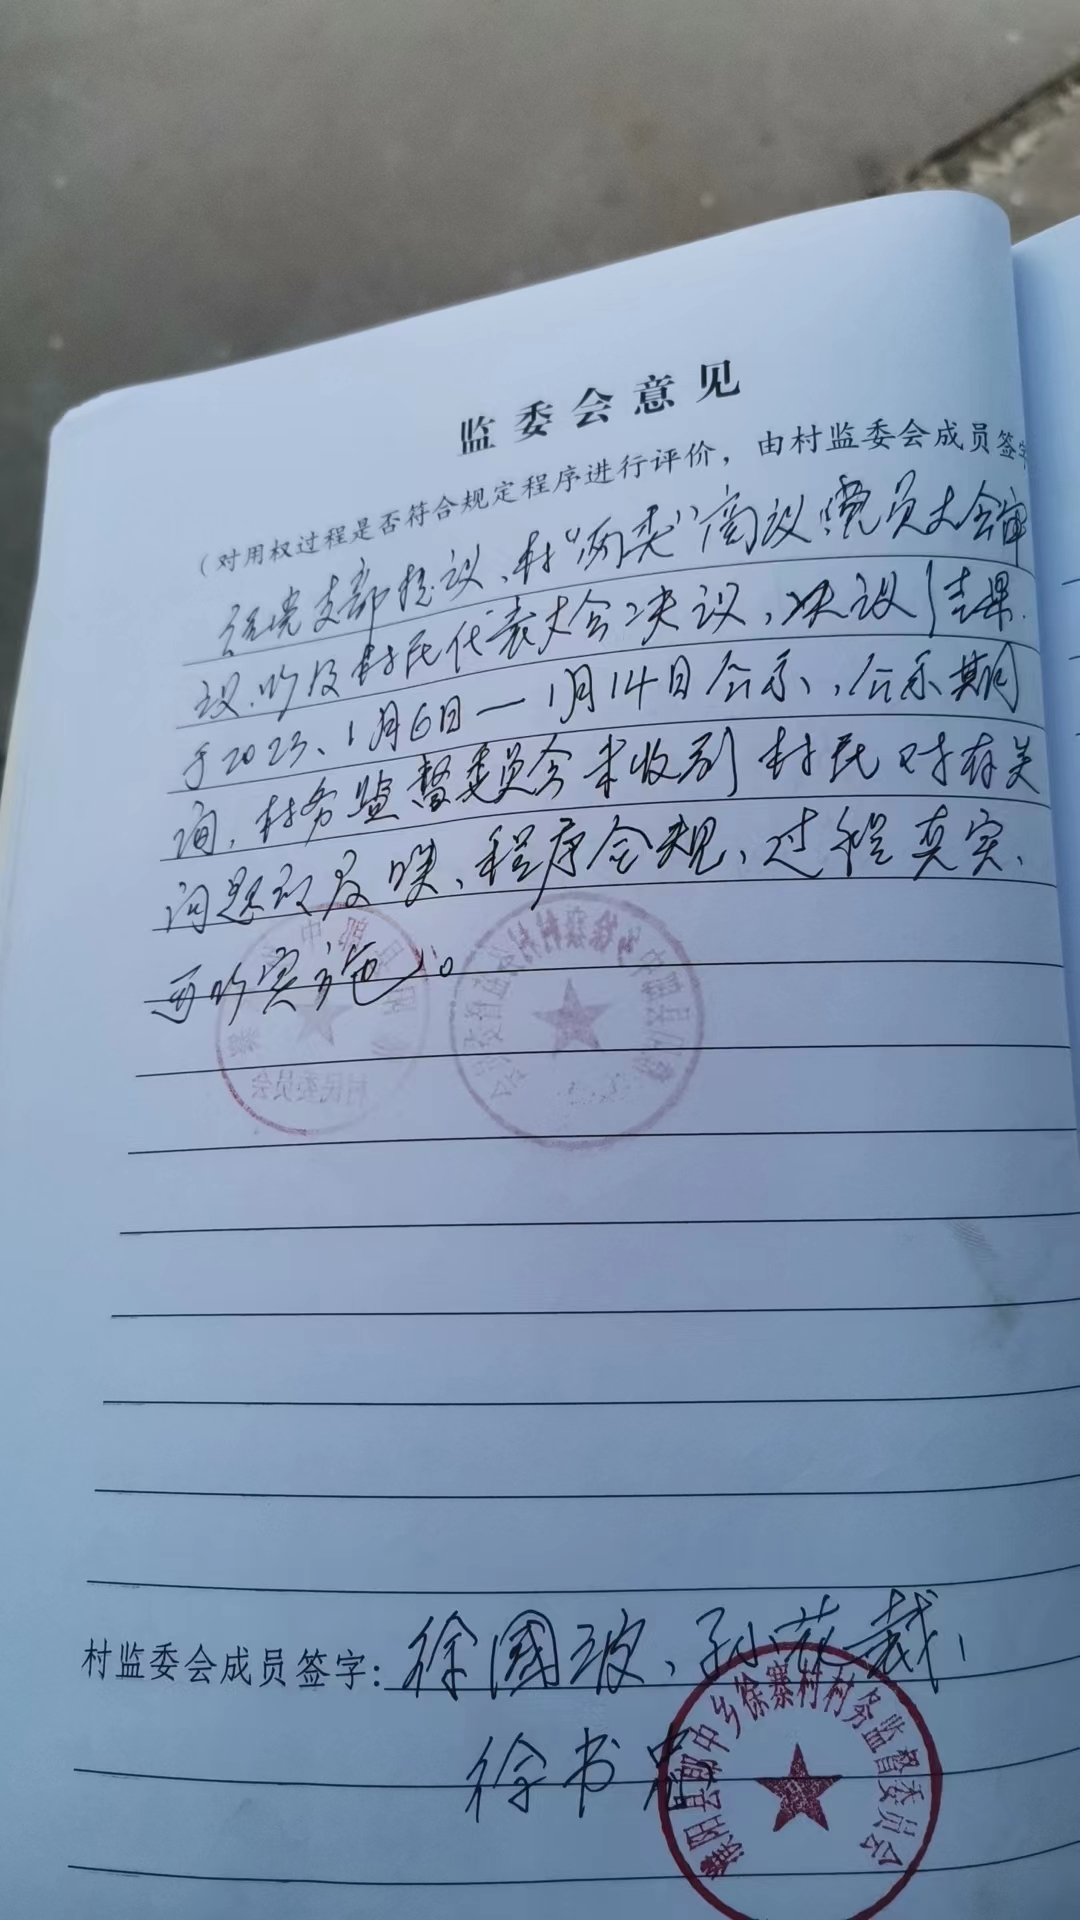 监委会意见
（对用权过程是否符合规定程序进行评价，由村监委会成员签字
经党支部提议、村“两委”商议、党员大会审
议以及村民代表大会决议，决议结果
于2023、1月6日—1月14日公示，公示期间
询，村务监督委员会未收到村民对有关
问题的反映、程序合规、过程真实、
可以实施。
村监委会成员签字：徐国波、孙花裁、
徐书忠
濮阳县郎中乡徐寨村村务监督委员会
村民委员会